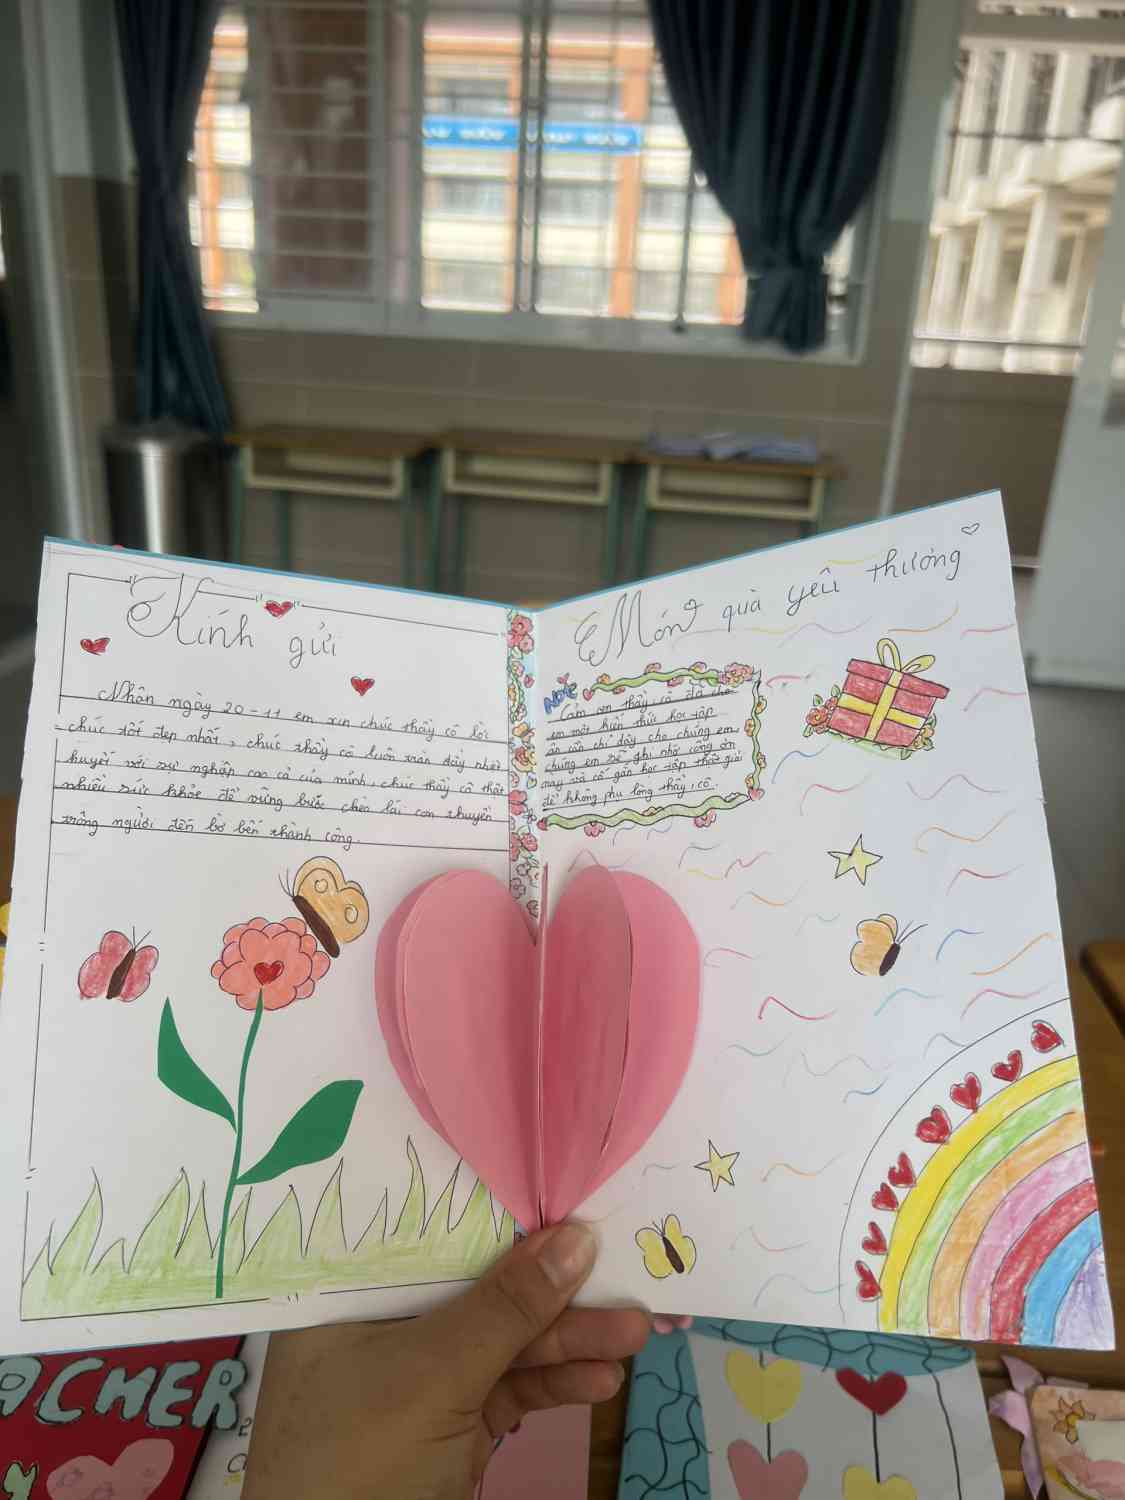 Kính gửi
Nhân ngày 20-11 em xin chúc thầy cô lời
chúc tốt đẹp nhất, chúc thầy cô luôn tràn đầy nhiệt
huyết với sự nghiệp cao cả của mình, chúc thầy cô thật
nhiều sức khỏe để vững bước chèo lái con thuyền
trồng người đến bờ bến thành công.
Món quà yêu thương
Cảm ơn thầy, cô đã cho
em một kiến thức học tập
ân cần chỉ dạy cho chúng em,
chúng em sẽ ghi nhớ công ơn
này và cố gắn học tập thật giỏi
để không phụ lòng thầy, cô.
ACHER